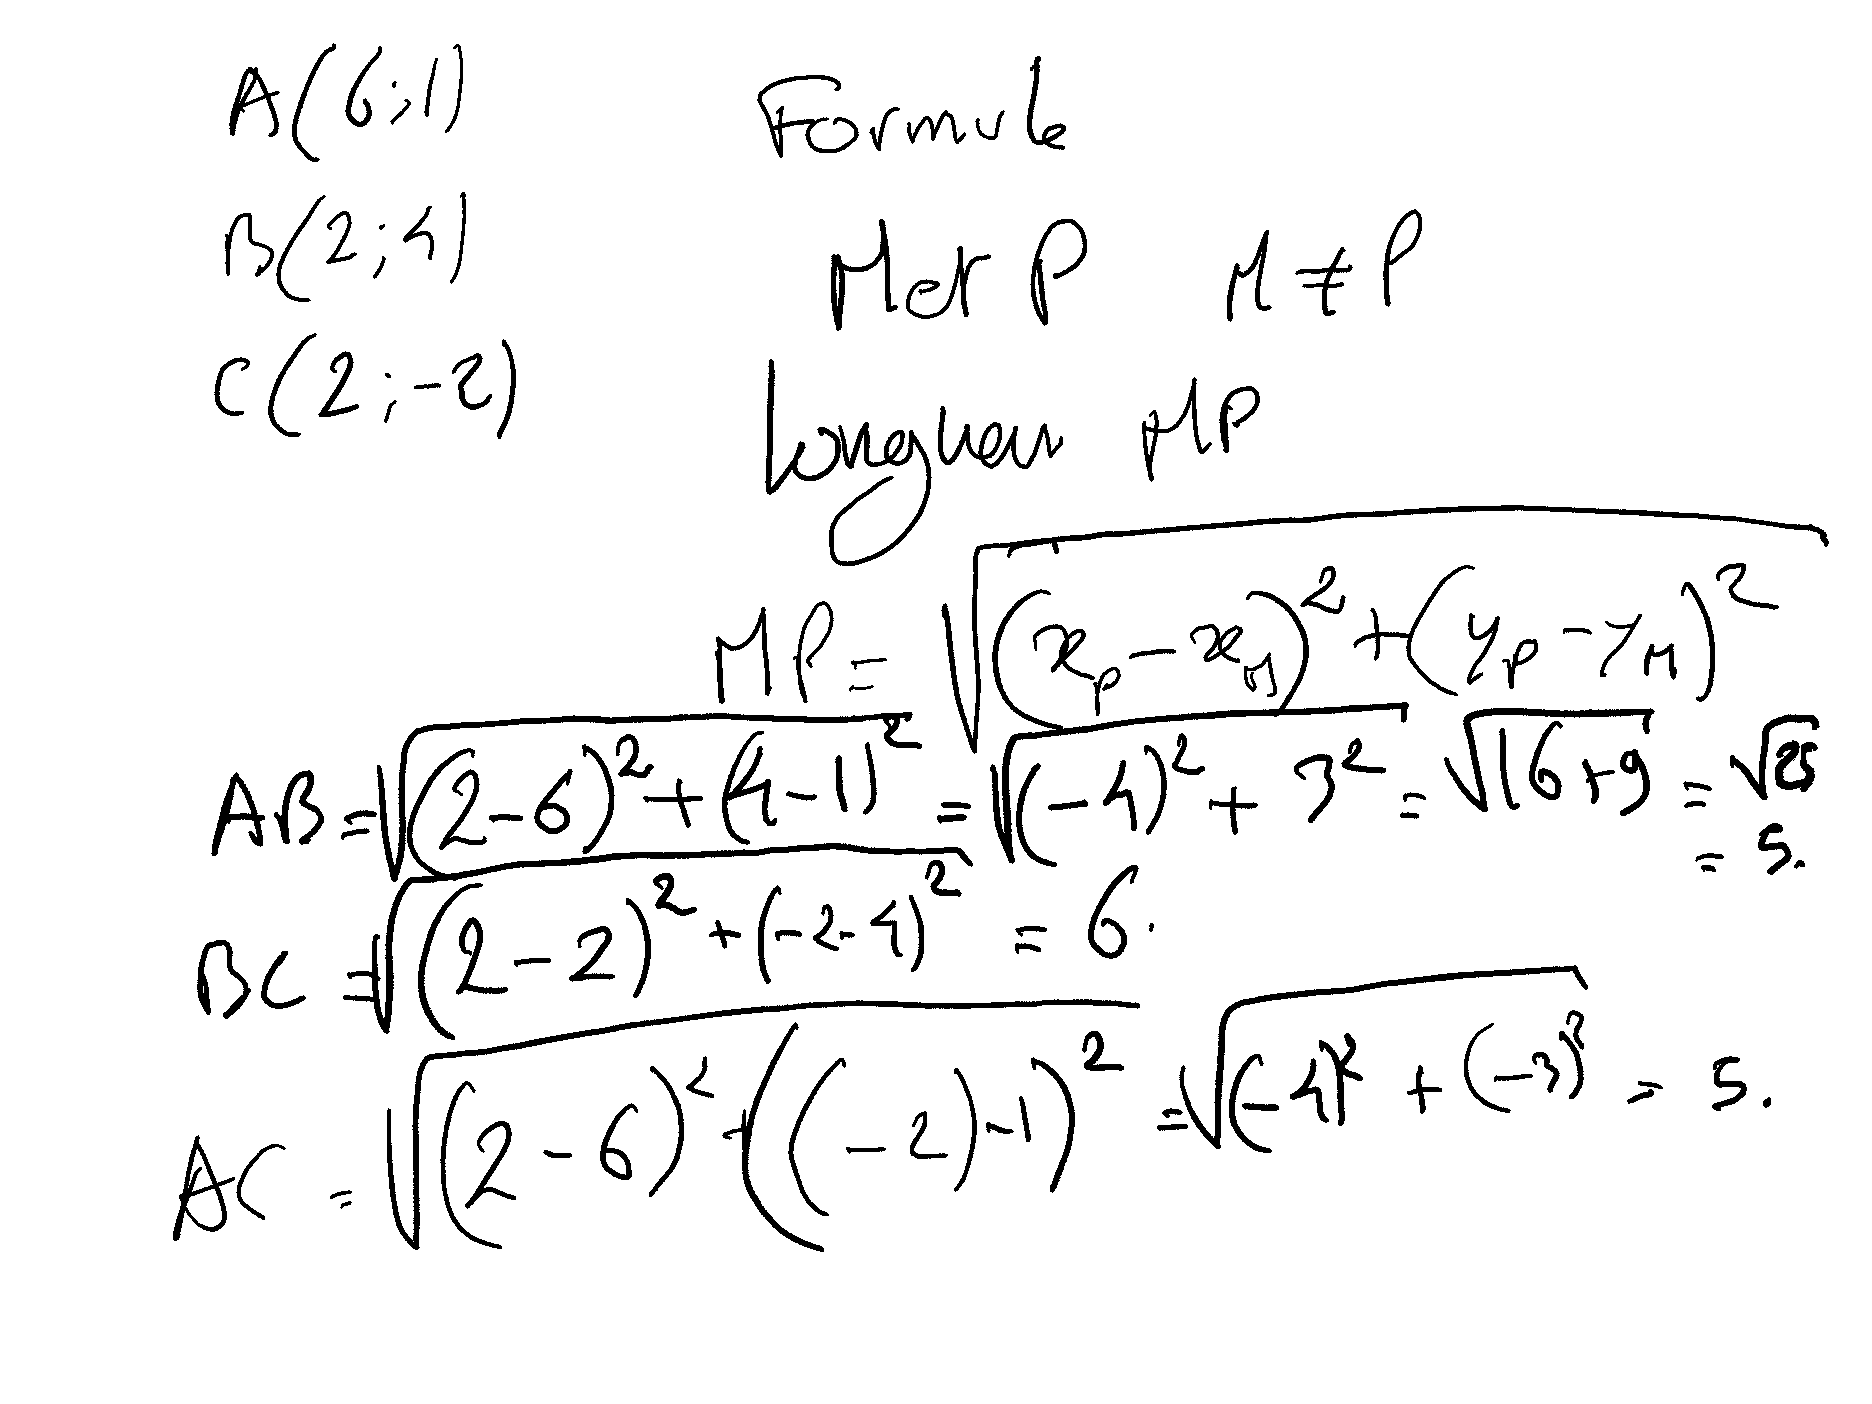 A(6;1)
B(2;4)
C(2;-2)
Formule
M et P M ≠ P
longueur MP
MP = √((x_P - x_M)² + (y_P - y_M)²)
AB = √((2-6)² + (4-1)²) = √((-4)² + 3²) = √(16+9) = √25
= 5.
BC = √((2-2)² + (-2-4)²) = 6.
AC = √((2-6)² + ((-2)-1)²) = √((-4)² + (-3)²) = 5.